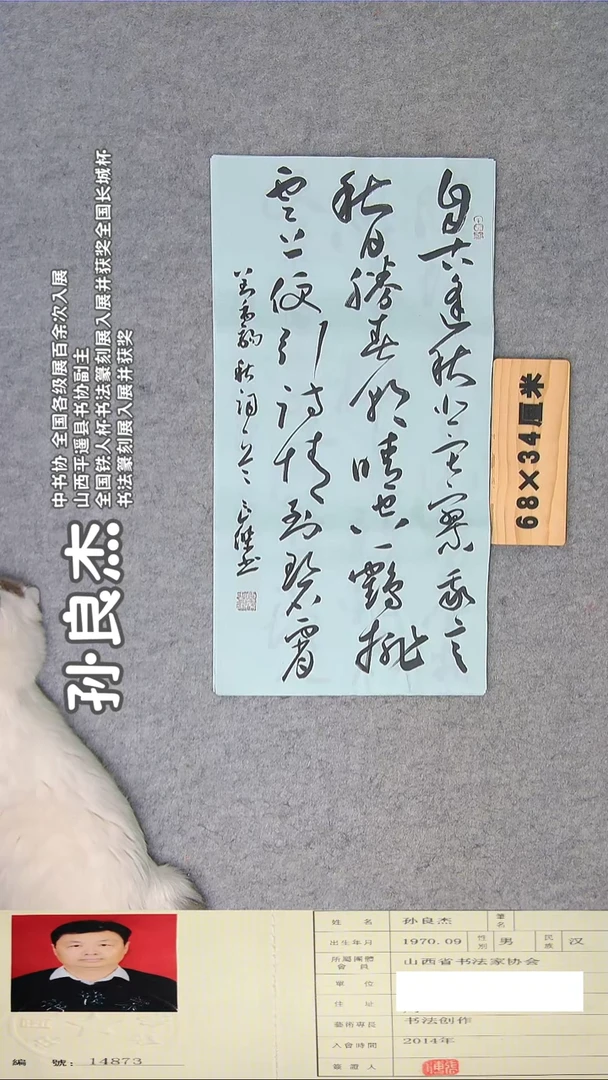 自古逢秋悲寂寥我言
秋日勝春朝晴空一鶴排
雲上便引詩情到碧霄
劉禹錫秋詞一首 良傑書
68×34厘米
孙良杰
中书协 全国各级展百余次入展
山西平遥县书协副主
全国铁人杯书法篆刻展入展并获奖全国长城杯
书法篆刻展入展并获奖
編 號：14873
姓 名 孙良杰 筆名
出生年月 1970.09 性別 男 民族 汉
所屬團體會員 山西省书法家协会
單 位
住 址
藝術專長 书法创作
入會時間 2014年
簽證人